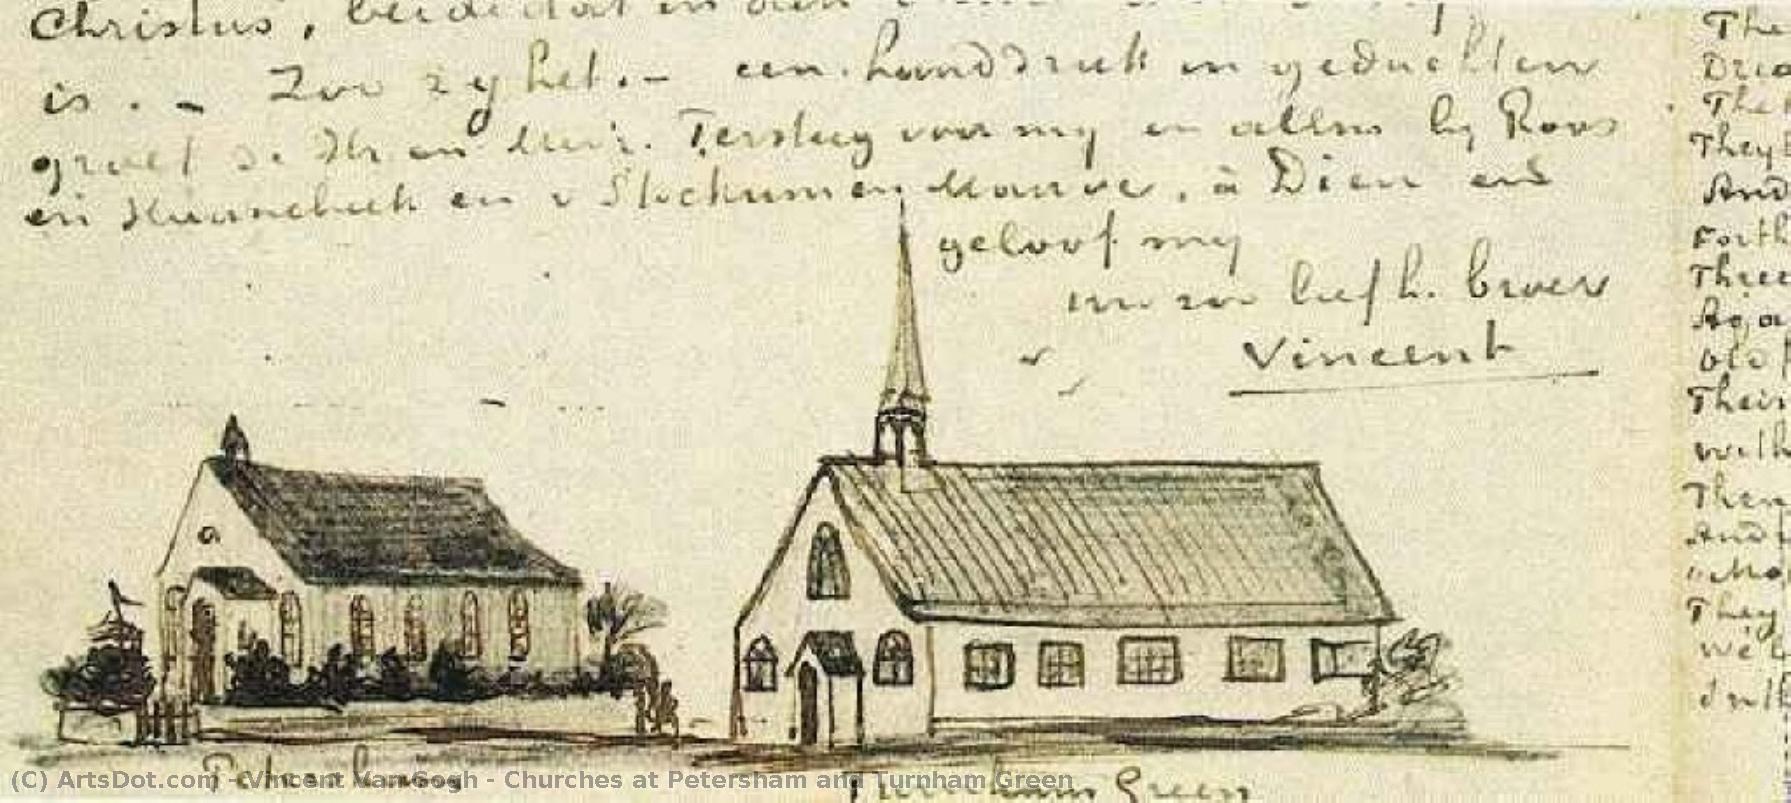 Christus, beide dat in den
is. - Zoo zy het. - een handdruk in gedachten
groet de Hr. en Mevr. Tersteeg voor my en allen by Roos
en Haanebeek en v Stockum en Mauve, à Dieu en
geloof my
uw zoo liefh. broer
Vincent
Petersham
Turnham Green
(C) ArtsDot.com - Vincent Van Gogh - Churches at Petersham and Turnham Green
The
The
They
And
Forth
Three
Aga
Old
Their
With
Then
And
Who
They